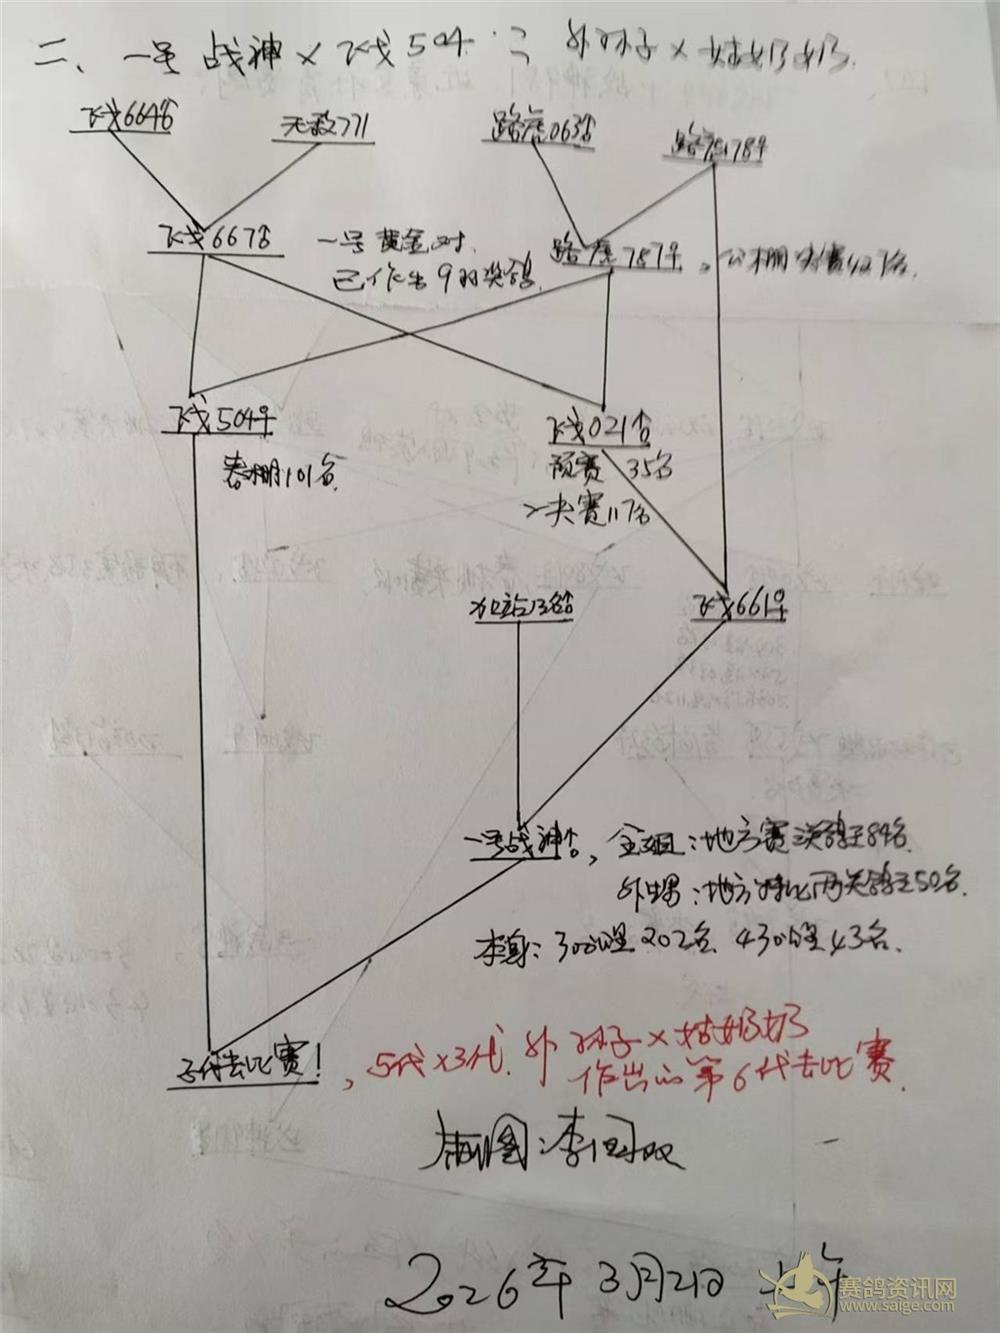 二、一号战神×飞戈504.=外孙子×姑奶奶.
飞戈664♂ 无敌771 路虎063♂ 路虎178♀
飞戈667♂ 一号黄金对. 路虎787♀,公棚决赛127名.
已作出9羽奖鸽.
飞戈504♀ 飞戈021♂
春棚101名. 预赛35名
决赛117名
飞戈661♀
一号战神♂,全姐:地方赛三关鸽王84名.
外甥:地方特比两关鸽王50名.
本身:300公里202名.430公里43名.
子代去比赛!,5代×3代.外孙子×姑奶奶
作出的第6代去比赛.
制图:李国双
2026年3月2日上午
赛鸽资讯网
www.saige.com